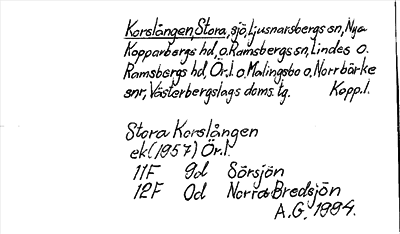 Korslången, Stora, sjö, Ljusnarsbergs sn, Nya
Kopparbergs hd, o. Ramsbergs sn, Lindes o.
Ramsbergs hd, Ör.l. o. Malingsbo o. Norrbärke
snr, Västerbergslags doms.tg. Kopp.l.
Stora Korslången
ek (1957) Ör.l.
11F 9d Sörsjön
12F 0d Norra Bredsjön
A.G, 1994.